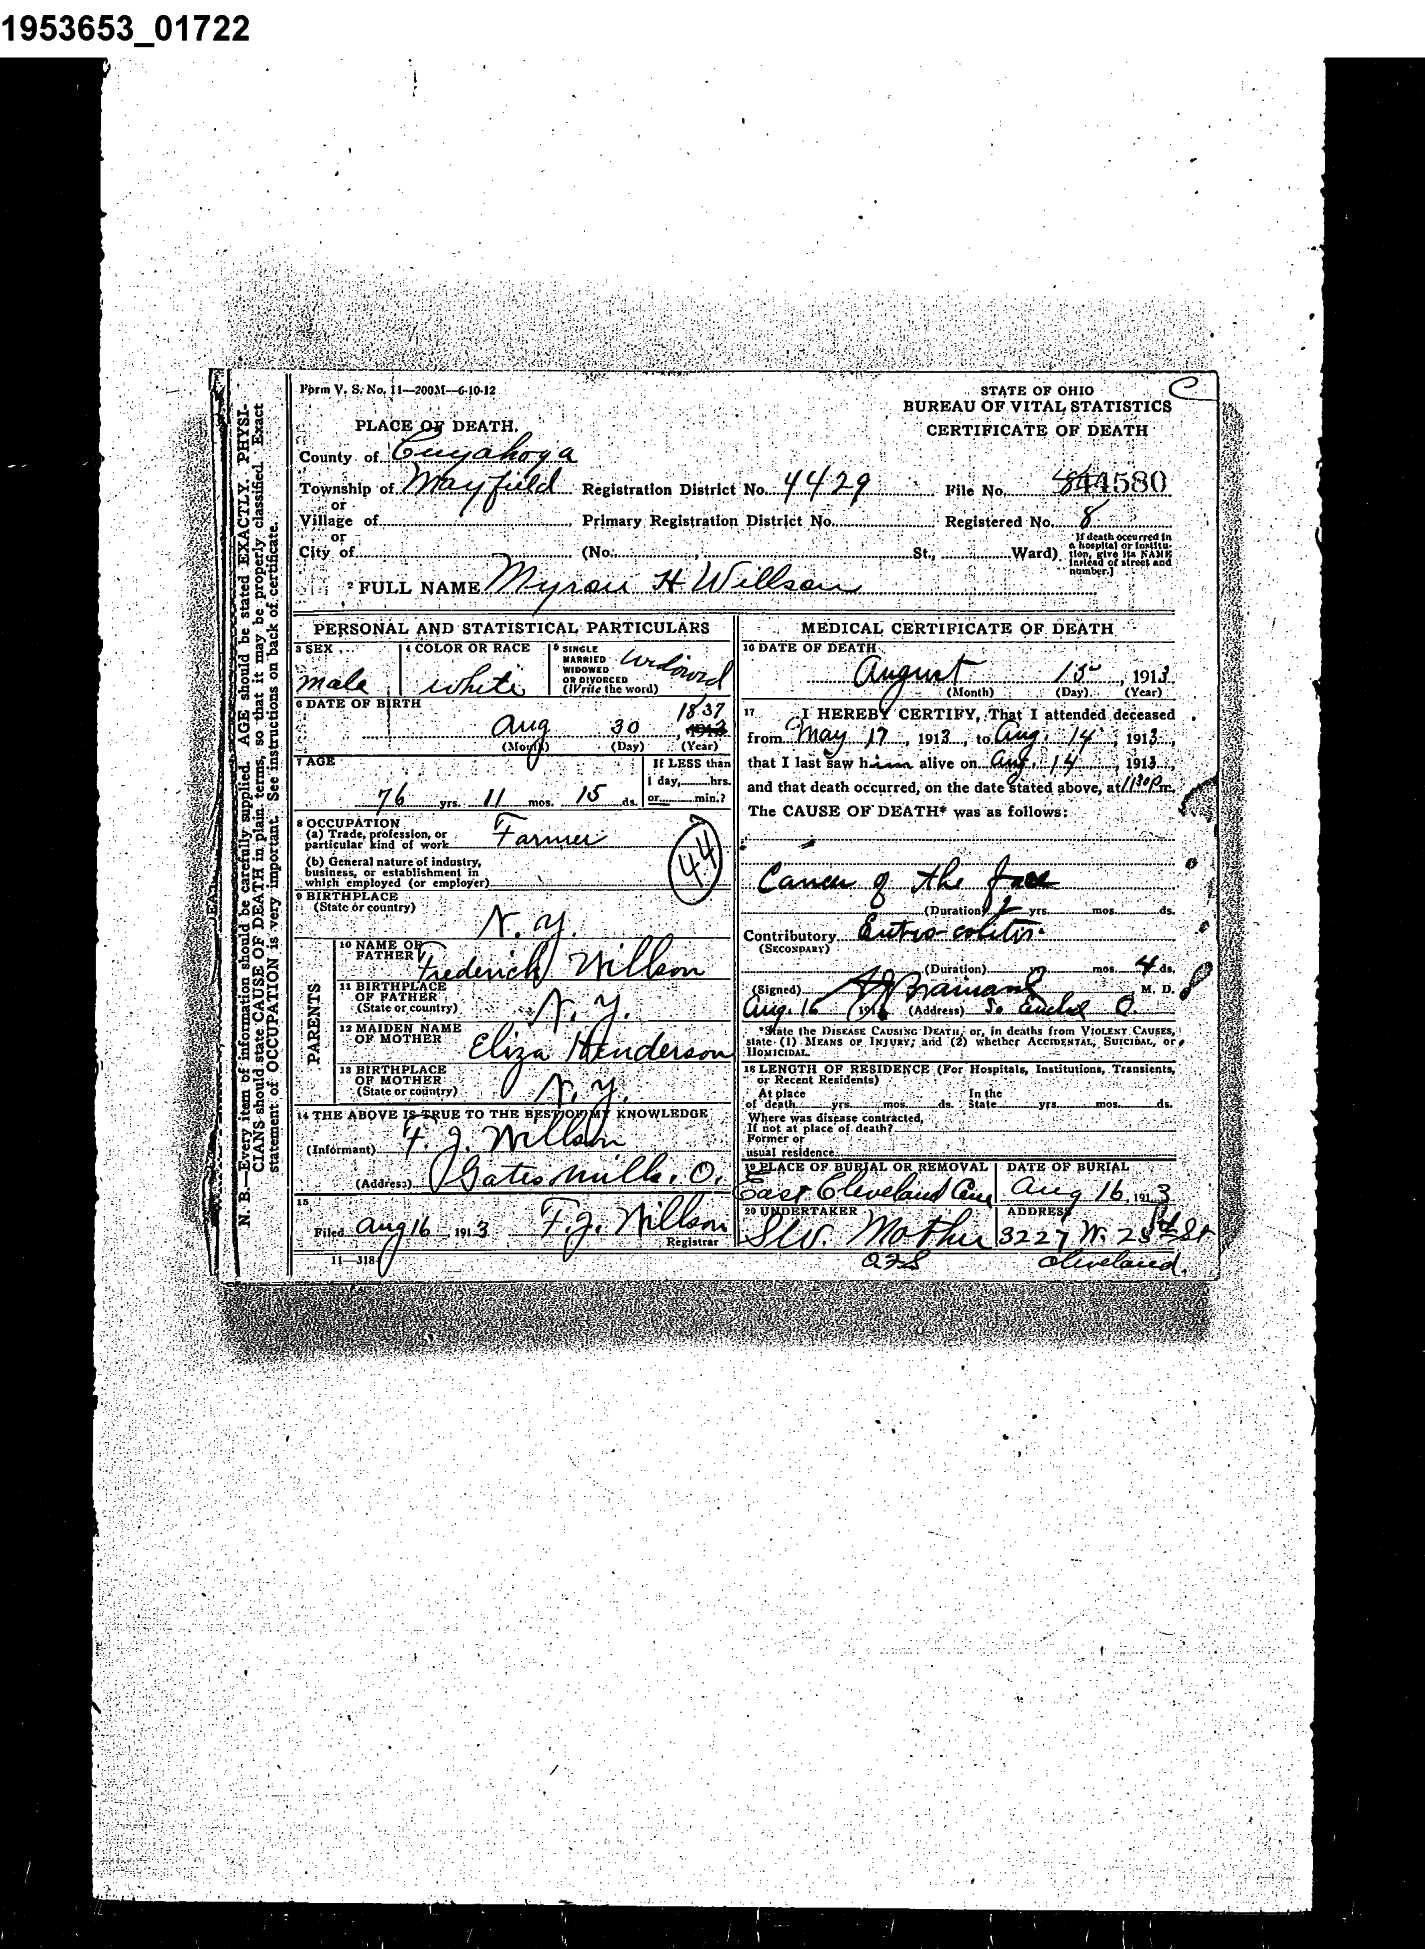 1953653_01722
Form V. S. No. 11—200M—6-10-12
STATE OF OHIO
BUREAU OF VITAL STATISTICS
CERTIFICATE OF DEATH
C
PLACE OF DEATH.
County of Cuyahoga
Township of Mayfield Registration District No. 4429 File No. 44580
or
Village of Primary Registration District No. Registered No. 8
or
City of (No. , St., Ward)
If death occurred in
a hospital or institu-
tion, give its NAME
instead of street and
number.]
2 FULL NAME Myron H Willson
PERSONAL AND STATISTICAL PARTICULARS
3 SEX
male
4 COLOR OR RACE
white
5 SINGLE
MARRIED
WIDOWED
OR DIVORCED
(Write the word)
widowed
6 DATE OF BIRTH
Aug 30 1837
(Month) (Day) (Year)
7 AGE
76 yrs. 11 mos. 15 ds.
If LESS than
1 day, hrs.
or min.?
8 OCCUPATION
(a) Trade, profession, or
particular kind of work Farmer
(b) General nature of industry,
business, or establishment in
which employed (or employer)
44
9 BIRTHPLACE
(State or country)
N. Y.
PARENTS
10 NAME OF
FATHER Frederick Willson
11 BIRTHPLACE
OF FATHER
(State or country) N. Y.
12 MAIDEN NAME
OF MOTHER Eliza Henderson
13 BIRTHPLACE
OF MOTHER
(State or country) N. Y.
14 THE ABOVE IS TRUE TO THE BEST OF MY KNOWLEDGE
(Informant) F. J. Willson
(Address) Gates Mills, O.
15
Filed Aug 16, 1913 F. J. Willson
Registrar
11—318
MEDICAL CERTIFICATE OF DEATH
16 DATE OF DEATH
August 15, 1913
(Month) (Day) (Year)
17 I HEREBY CERTIFY, That I attended deceased
from May 17, 1913, to Aug. 14, 1913,
that I last saw him alive on Aug. 14, 1913,
and that death occurred, on the date stated above, at 1130 P m.
The CAUSE OF DEATH* was as follows:
Cancer of the face
(Duration) 2 yrs. mos. ds.
Contributory Entro-colitis
(SECONDARY)
(Duration) mos. 4 ds.
(Signed) M. D.
Aug. 16 191 (Address) So Euclid O.
*State the DISEASE CAUSING DEATH, or, in deaths from VIOLENT CAUSES,
state (1) MEANS OF INJURY; and (2) whether ACCIDENTAL, SUICIDAL, or
HOMICIDAL.
18 LENGTH OF RESIDENCE (For Hospitals, Institutions, Transients,
or Recent Residents)
At place In the
of death yrs. mos. ds. State yrs. mos. ds.
Where was disease contracted,
If not at place of death?
Former or
usual residence
19 PLACE OF BURIAL OR REMOVAL
East Cleveland Cem
DATE OF BURIAL
Aug 16, 1913
20 UNDERTAKER
S W. Mother
ADDRESS
3227 W. 25th St
Cleveland.
N. B.—Every item of information should be carefully supplied. AGE should be stated EXACTLY. PHYSI-
CIANS should state CAUSE OF DEATH in plain terms, so that it may be properly classified. Exact
statement of OCCUPATION is very important. See instructions on back of certificate.